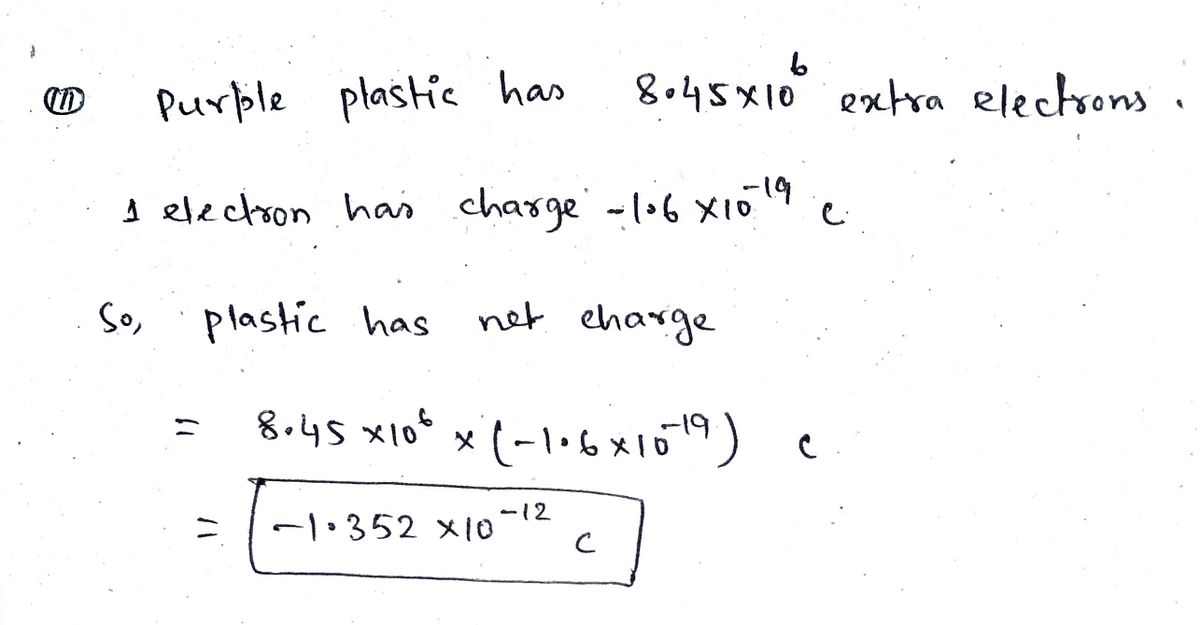 (II) Purple plastic has 8.45×10⁶ extra electrons.
1 electron has charge -1.6 ×10⁻¹⁹ C
So, plastic has net charge
= 8.45 ×10⁶ × (-1.6×10⁻¹⁹) C
= -1.352 ×10⁻¹² C